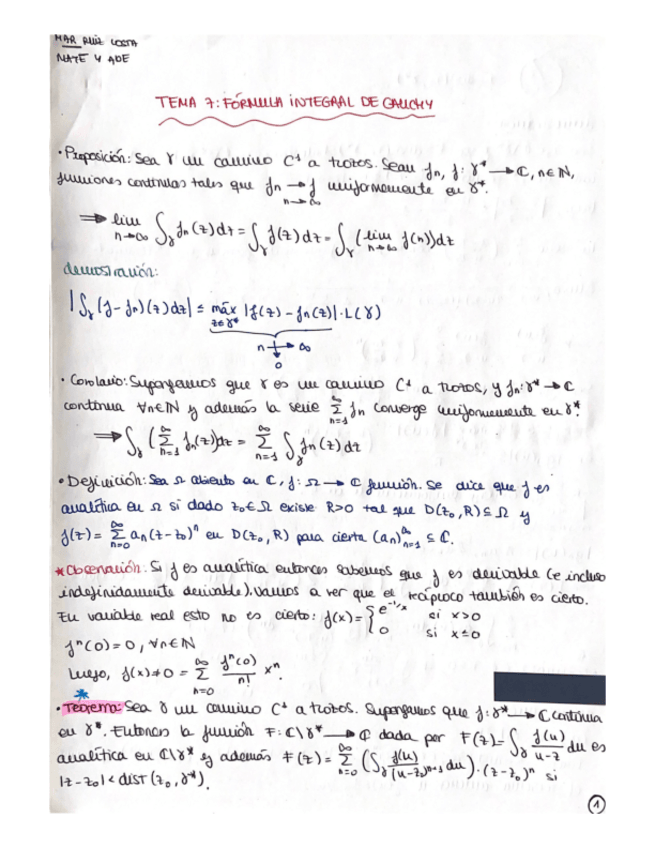 MAR RUIZ COSTA
MATE Y ADE
TEMA 7: FÓRMULA INTEGRAL DE CAUCHY
• Proposición: Sea γ un camino C¹ a trozos. Sean fn, f: γ* → ℂ, n∈ℕ,
funciones continuas tales que fn → f uniformemente en γ*.
n→∞
⇒ lim n→∞ ∫γ fn(z)dz = ∫γ f(z)dz = ∫γ (lim n→∞ f(n))dz
demostración:
|∫γ (f-fn)(z)dz| ≤ máx z∈γ* |f(z) - fn(z)| · L(γ)
n → ∞
0
• Corolario: Supongamos que γ es un camino C¹ a trozos, y fn: γ* → ℂ
continua ∀n∈ℕ y además la serie ∑n=1^∞ fn converge uniformemente en γ*.
⇒ ∫γ (∑n=1^∞ fn(z))dz = ∑n=1^∞ ∫γ fn(z)dz
• Definición: Sea Ω abierto en ℂ, f: Ω → ℂ función. Se dice que f es
analítica en Ω si dado z₀∈Ω existe R>0 tal que D(z₀, R)⊆Ω y
f(z) = ∑n=0^∞ an(z-z₀)ⁿ en D(z₀, R) para cierta (an)n=1^∞ ⊆ ℂ.
* Observación: Si f es analítica entonces sabemos que f es derivable (e incluso
indefinidamente derivable). Vamos a ver que el recíproco también es cierto.
En variable real esto no es cierto: f(x) = { e^(-1/x) si x>0
0 si x≤0
fⁿ(0) = 0, ∀n∈ℕ
Luego, f(x) ≠ 0 = ∑n=0^∞ fⁿ(0)/n! xⁿ.
*
• Teorema: Sea γ un camino C¹ a trozos. Supongamos que f: γ* → ℂ continua
en γ*. Entonces la función F: ℂ\γ* → ℂ dada por F(z) = ∫γ f(u)/(u-z) du es
analítica en ℂ\γ* y además F(z) = ∑n=0^∞ (∫γ f(u)/(u-z₀)ⁿ⁺¹ du) · (z-z₀)ⁿ si
|z-z₀| < dist(z₀, γ*).
1